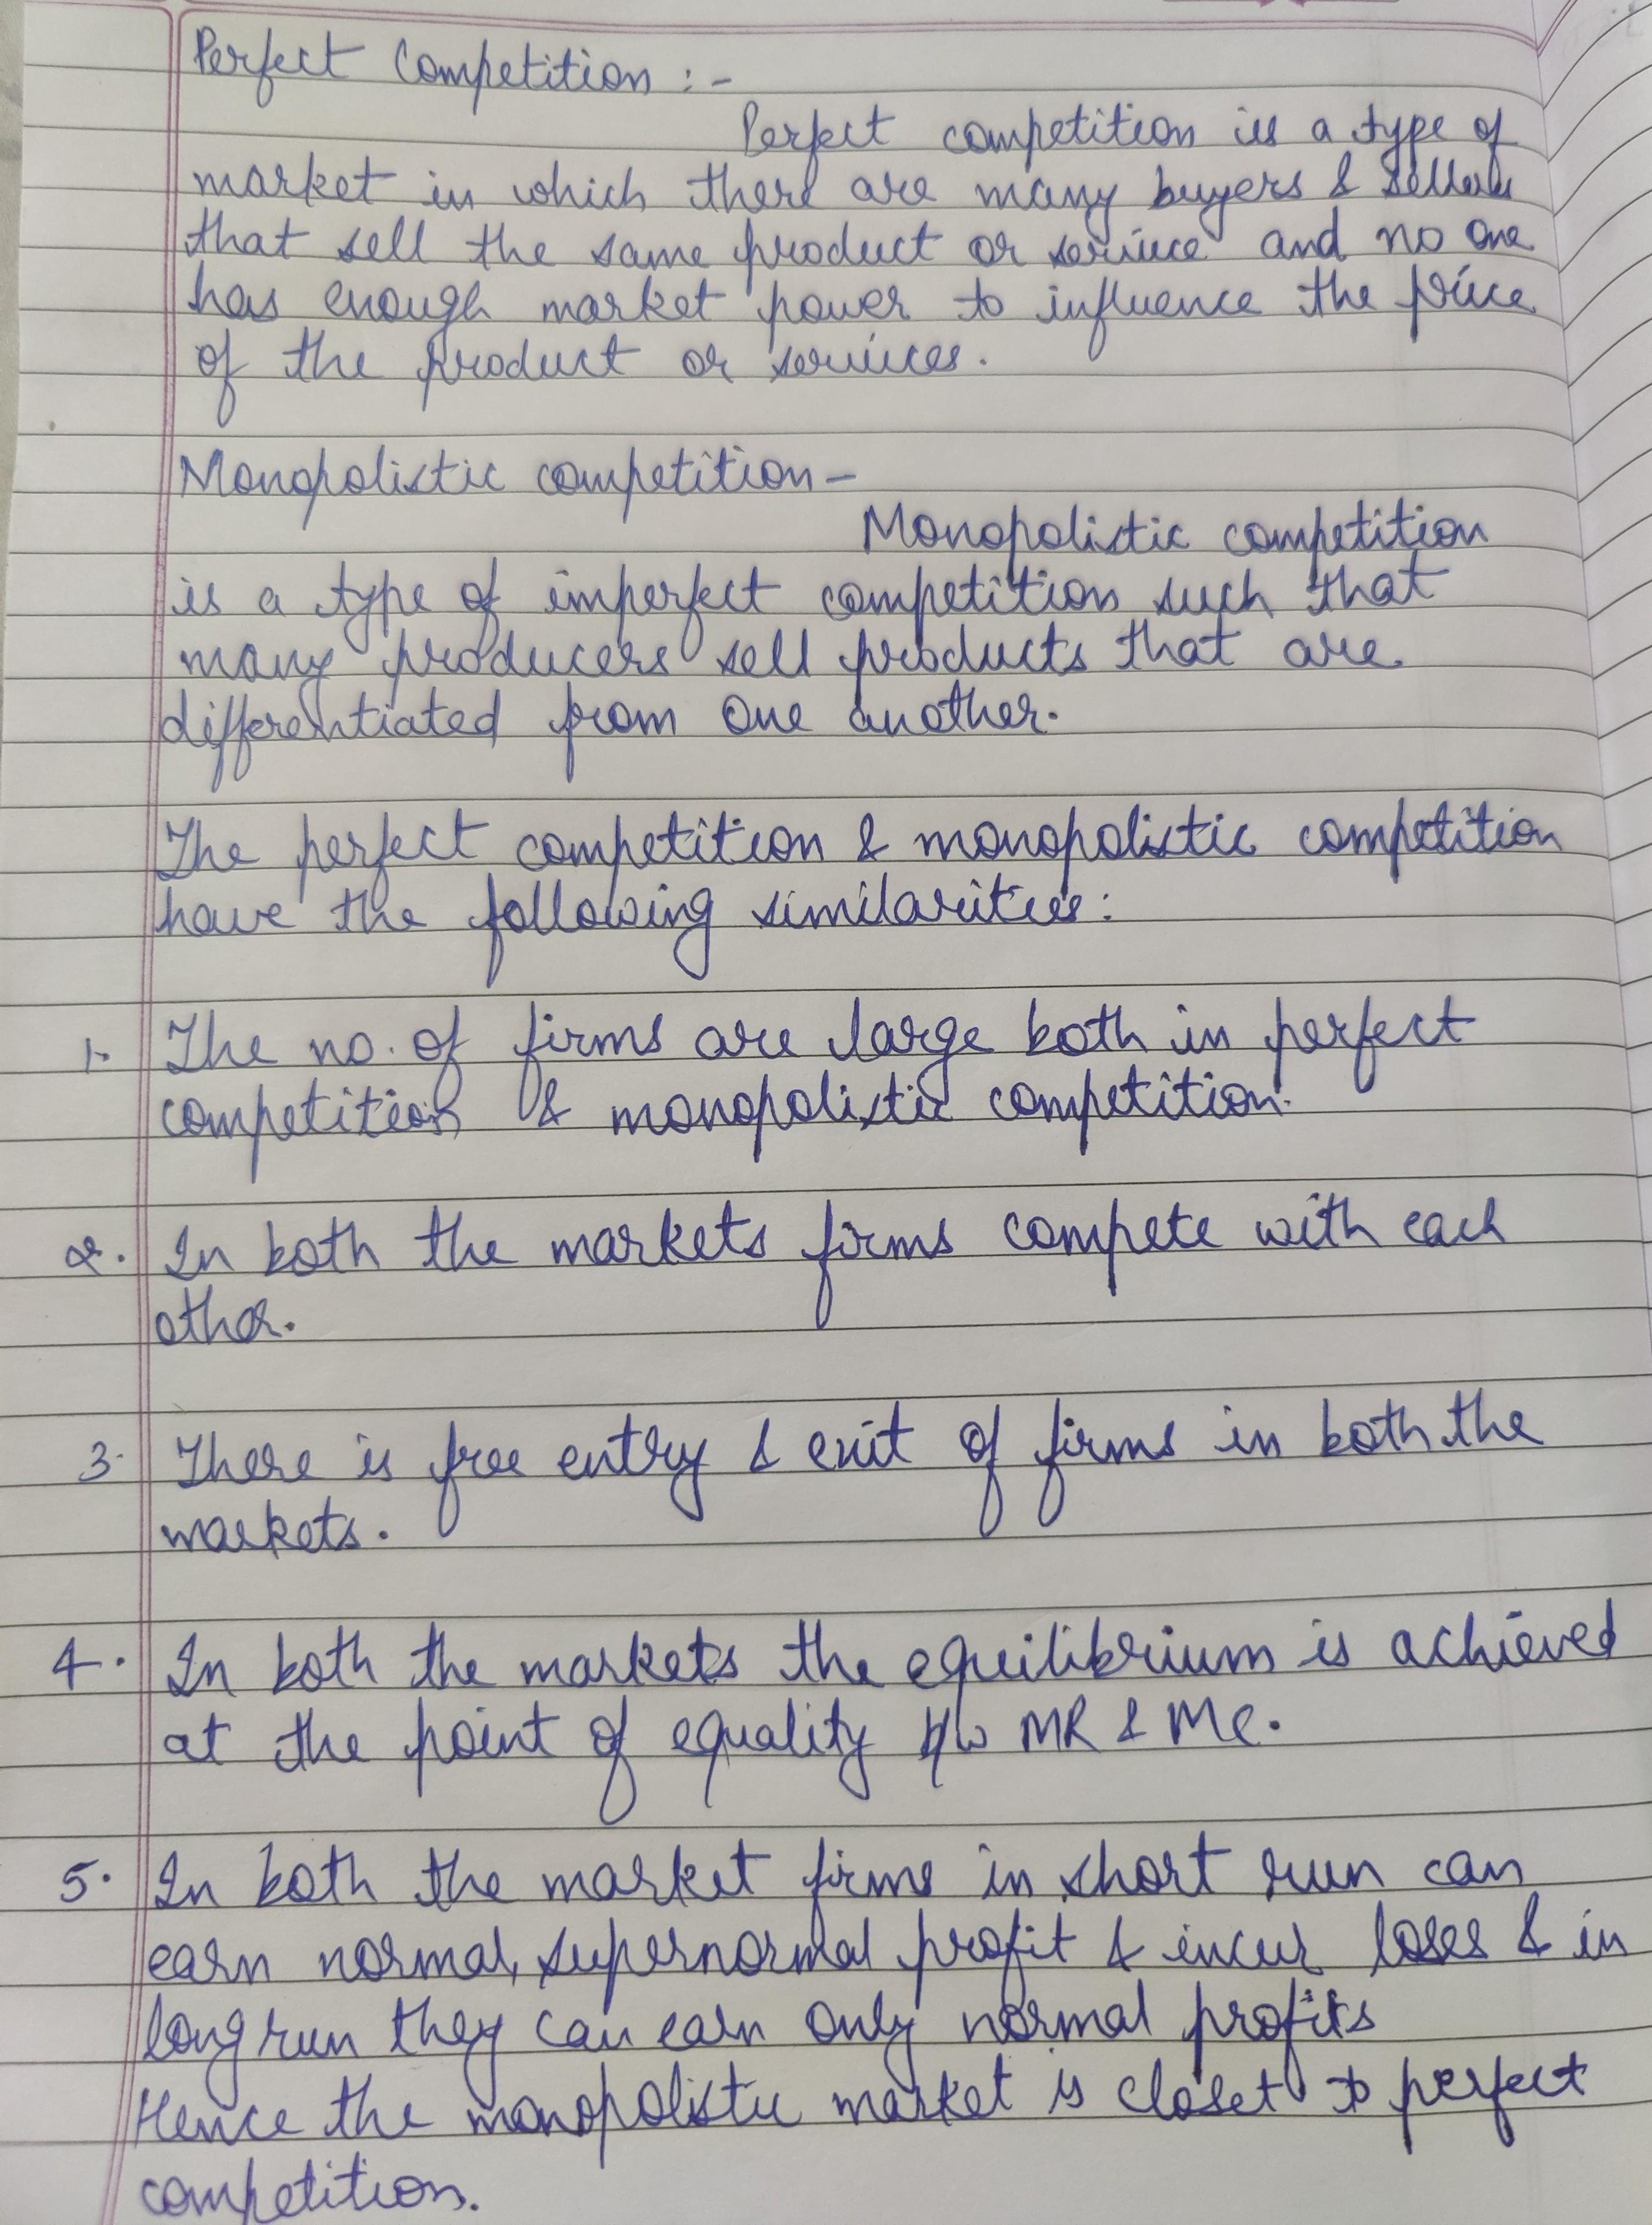 Perfect Competition :-
Perfect competition is a type of
market in which there are many buyers & sellers
that sell the same product or service and no one
has enough market power to influence the price
of the product or services.
Monopolistic competition-
Monopolistic competition
is a type of imperfect competition such that
many producers sell products that are
differentiated from one another.
The perfect competition & monopolistic competition
have the following similarities:
1. The no. of firms are large both in perfect
competition & monopolistic competition.
2. In both the markets firms compete with each
other.
3. There is free entry & exit of firms in both the
markets.
4. In both the markets the equilibrium is achieved
at the point of equality b/w MR & MC.
5. In both the market firms in short run can
earn normal, supernormal profit & incur loses & in
long run they can earn only normal profits
Hence the monopolistic market is closet to perfect
competition.